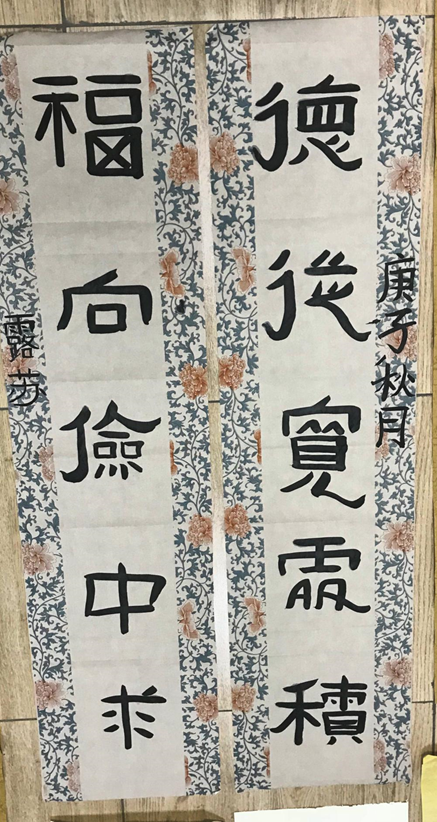 庚子秋月
德從寬處積
福向儉中求
露芳